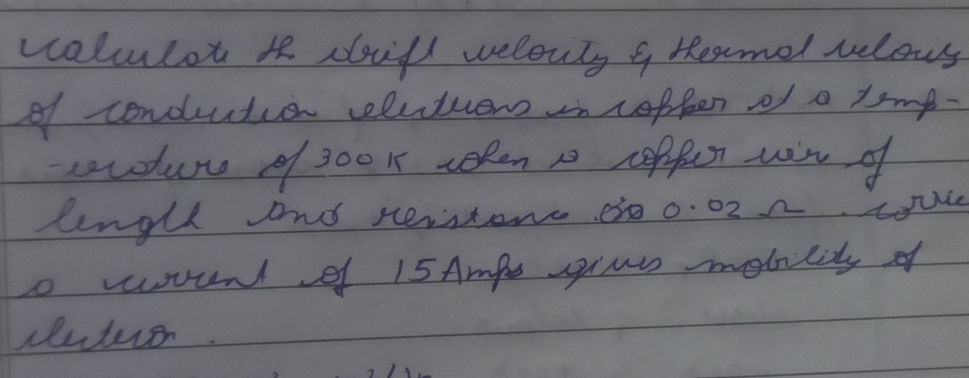 calculate the drift velocity & thermal velocity
of conduction electrons in copper at a temp-
-erature of 300K when a copper wire of
length and resistance 0.02 Ω
a current of 15 Amps gives mobility of
electron.